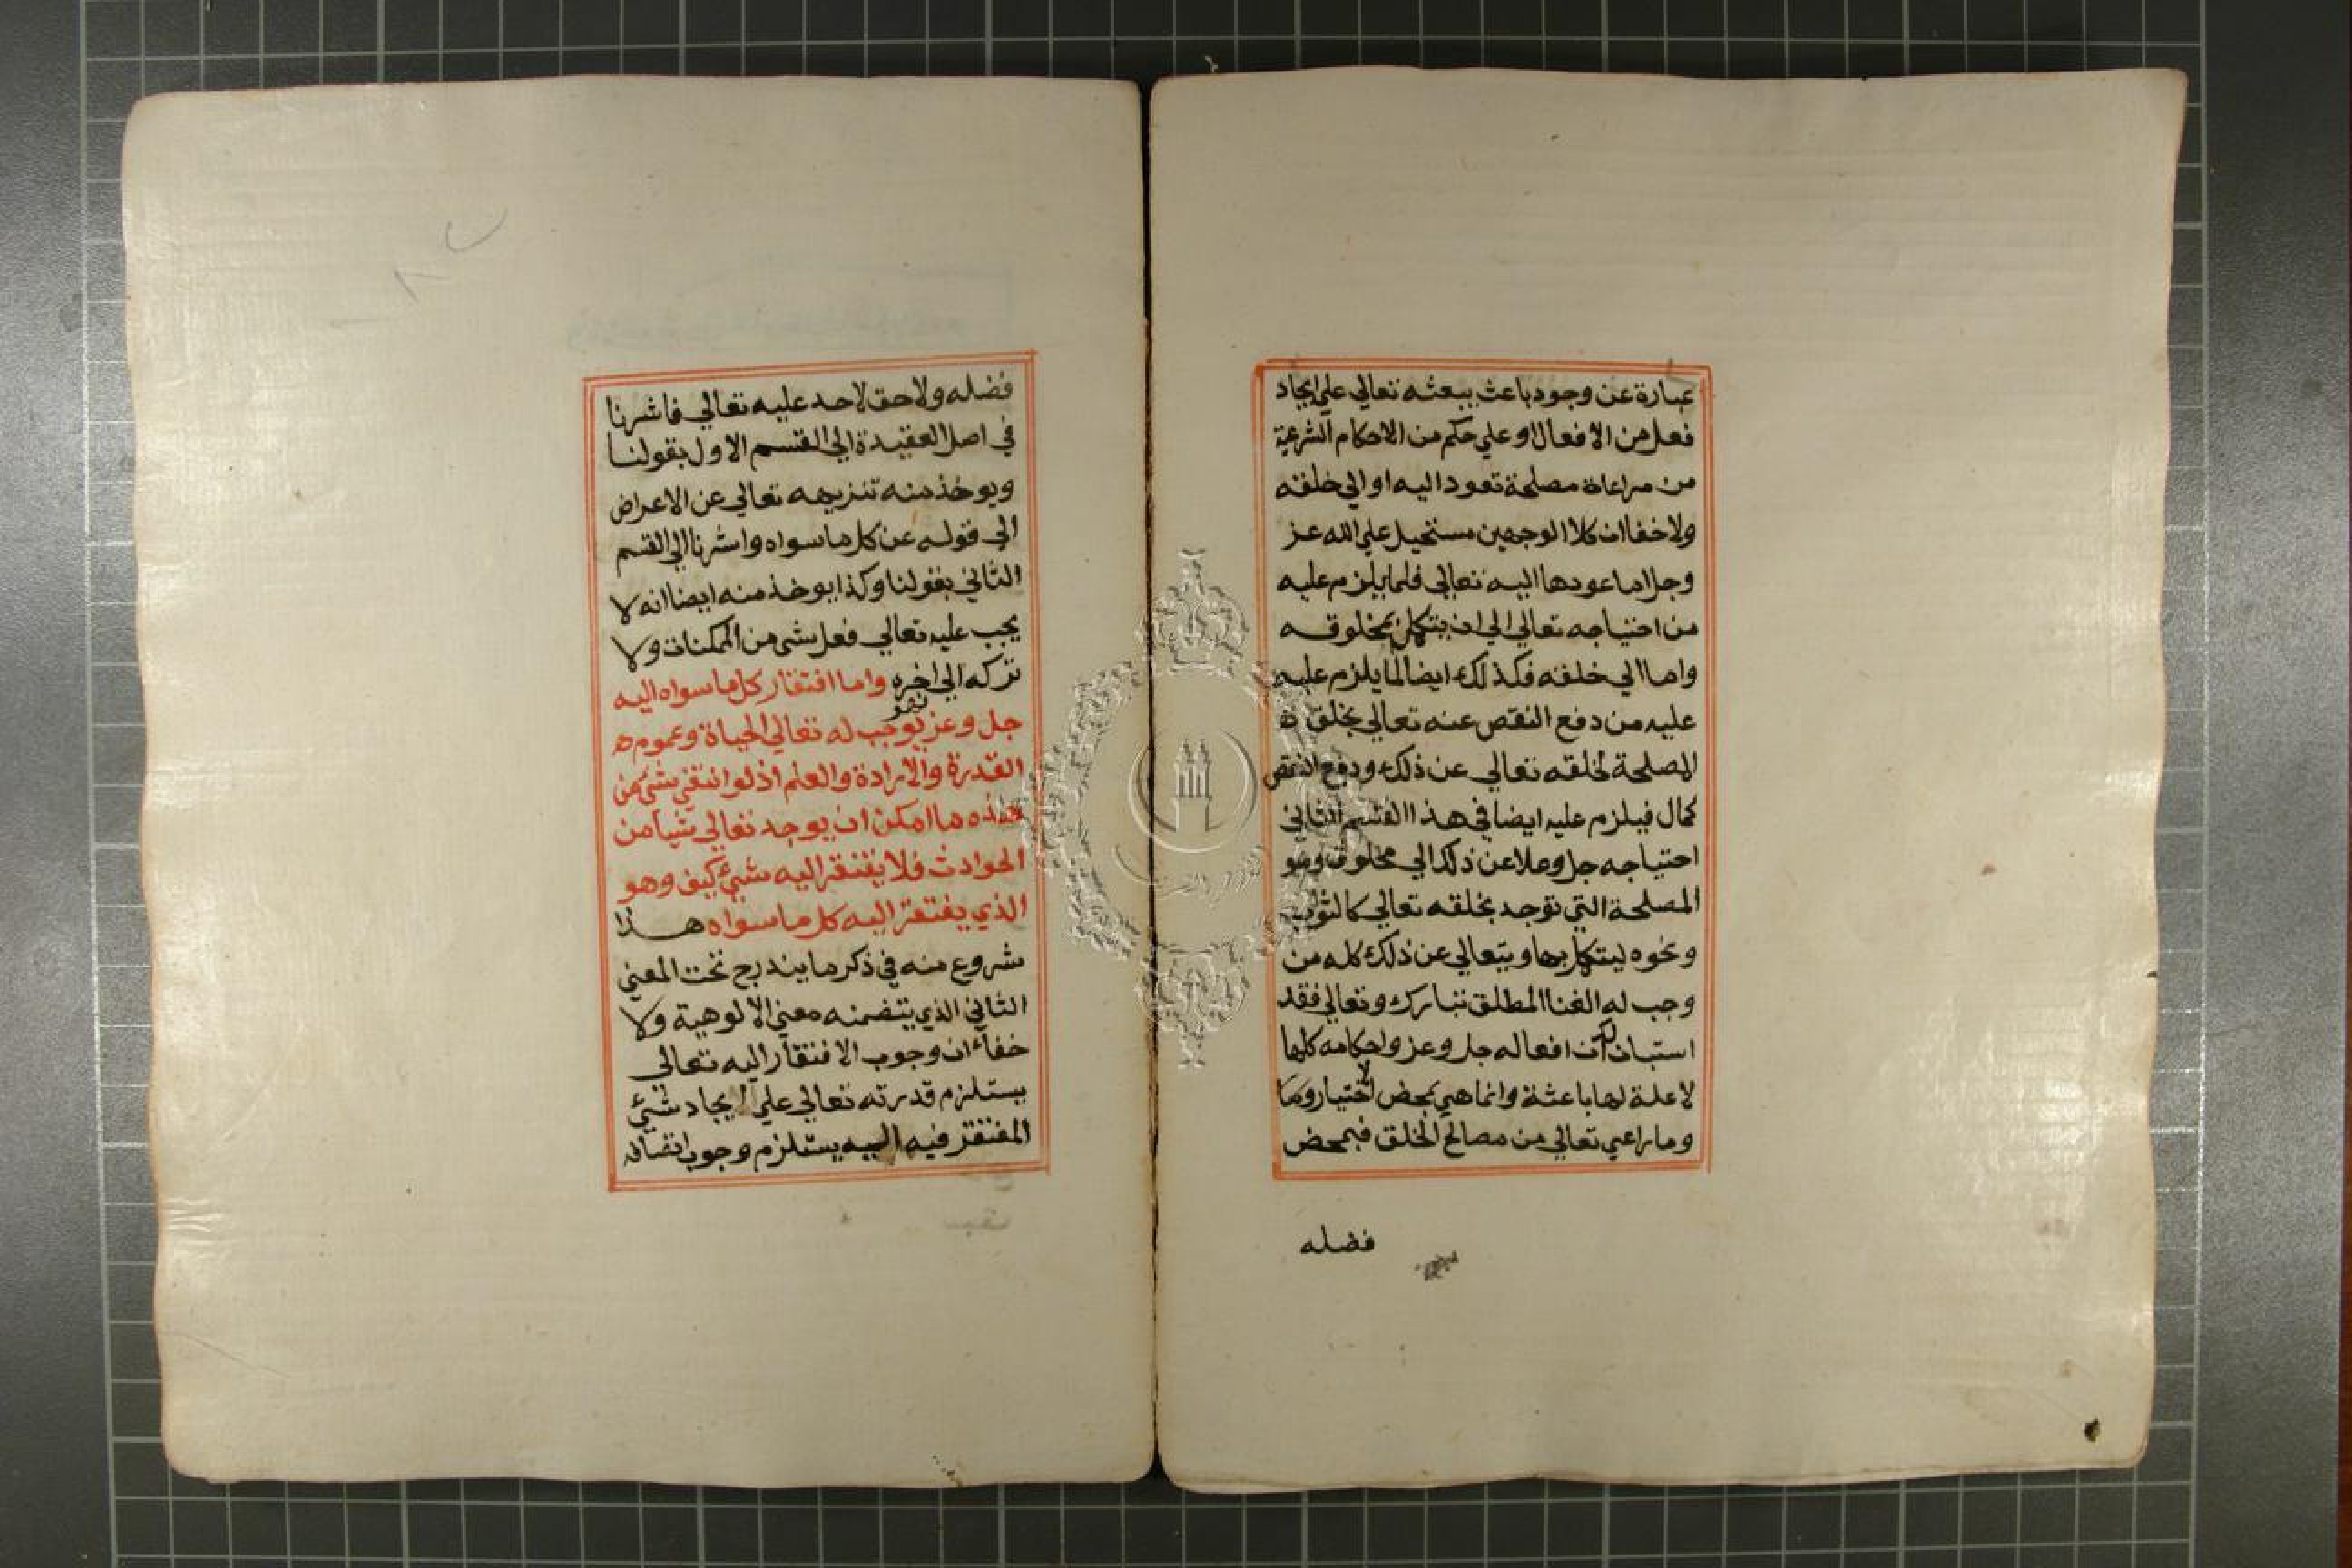 عبارة عن وجود باعث يبعثه تعالي علي ايجاد
فعل من الافعال او علي حكم من الاحكام الشرعية
من مراعاة مصلحة تعود اليه او الي خلقه
ولا خفا ان كلا الوجهين مستحيل علي الله عز
وجل اما عودها اليه تعالي فلما يلزم عليه
من احتياجه تعالي الي ان يتكمل بمخلوقه
واما الي خلقه فكذلك ايضا لما يلزم عليه
عليه من دفع النقص عنه تعالي بخلق
المصلحة لخلقه تعالي عن ذلك ودفع النقص
كمال فيلزم عليه ايضا في هذا القسم الثاني
احتياجه جل وعلا عن ذلك الي مخلوق وهو
المصلحة التي توجد بخلقه تعالي كالثواب
ونحوه ليتكمل بها ويتعالي عن ذلك كله من
وجب له الغنا المطلق تبارك وتعالي فقد
استبان لك ان افعاله جل وعز واحكامه كلها
لا علة لها باعثة وانما هي بمحض لاختيار وما
وما راعي تعالي من مصالح الخلق فبمحض
فضله
فضله ولا حق لاحد عليه تعالي فاشرنا
في اصل العقيدة الي القسم الاول بقولنا
ويوخذ منه تنزيهه تعالي عن الاعراض
الي قوله عن كل ما سواه واشرنا الي القسم
الثاني بقولنا وكذا يوخذ منه ايضا انه لا
يجب عليه تعالي فعل شي من الممكنات ولا
تركه الي اخره واما افتقار كل ما سواه اليه
جل وعز فهو يوجب له تعالي الحياة وعموم
القدرة والارادة والعلم اذ لو انتفي شئ من
هذه ما امكن ان يوجد تعالي شيا من
الحوادث فلا يفتقر اليه شئ كيف وهو
الذي يفتقر اليه كل ما سواه هذا
شروع منه في ذكر ما يندرج تحت المعني
الثاني الذي يتضمنه معني الالوهية ولا
خفاء ان وجوب الافتقار اليه تعالي
يستلزم قدرته تعالي علي ايجاد شئ
المفتقر فيه اليه يستلزم وجوب اتصافه